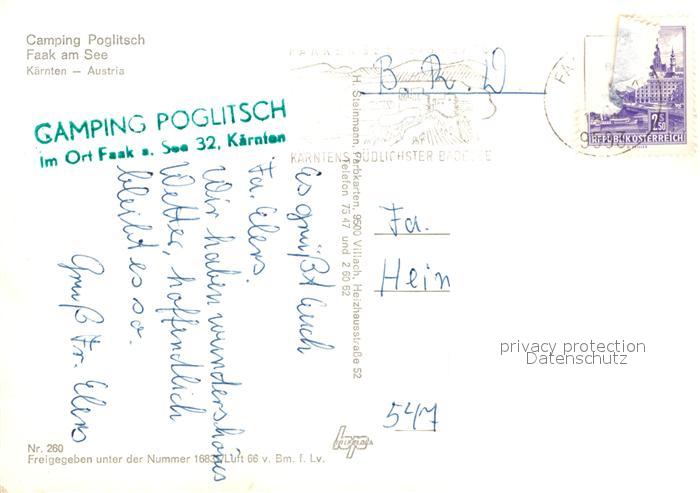 Camping Poglitsch
Faak am See
Kärnten — Austria
CAMPING POGLITSCH
im Ort Faak a. See 32, Kärnten
KÄRNTENS SÜDLICHSTER
B.R.D
2 S 50
REPUBLIK ÖSTERREICH
H. Steinmann, Farbkarten, 9500 Villach, Heizhausstraße 52
Telefon 75 47 und 2 60 62
Es grüßt Euch
Fa. Elers.
Wir haben wunderschönes
Wetter, hoffentlich
bleibt es so.
Gruß Fr. Elers
Fa.
Hein
547
privacy protection
Datenschutz
Nr. 260
Freigegeben unter der Nummer 1683/Luft 66 v. Bm. f. Lv.